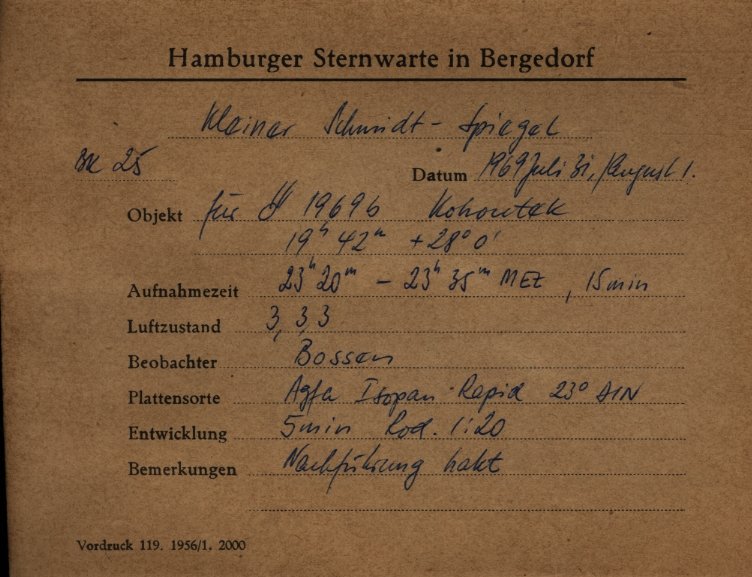 Hamburger Sternwarte in Bergedorf
Kleiner Schmidt-Spiegel
25 Datum 1969 Juli 31./August 1.
Objekt für ☄ 1969b Kohoutek
19ʰ 42ᵐ +28° 0'
Aufnahmezeit 23ʰ 20ᵐ – 23ʰ 35ᵐ MEZ, 15min
Luftzustand 3, 3, 3
Beobachter Bossen
Plattensorte Agfa Isopan-Rapid 23° DIN
Entwicklung 5min Rod. 1:20
Bemerkungen Nachführung hakt
Vordruck 119. 1956/1. 2000